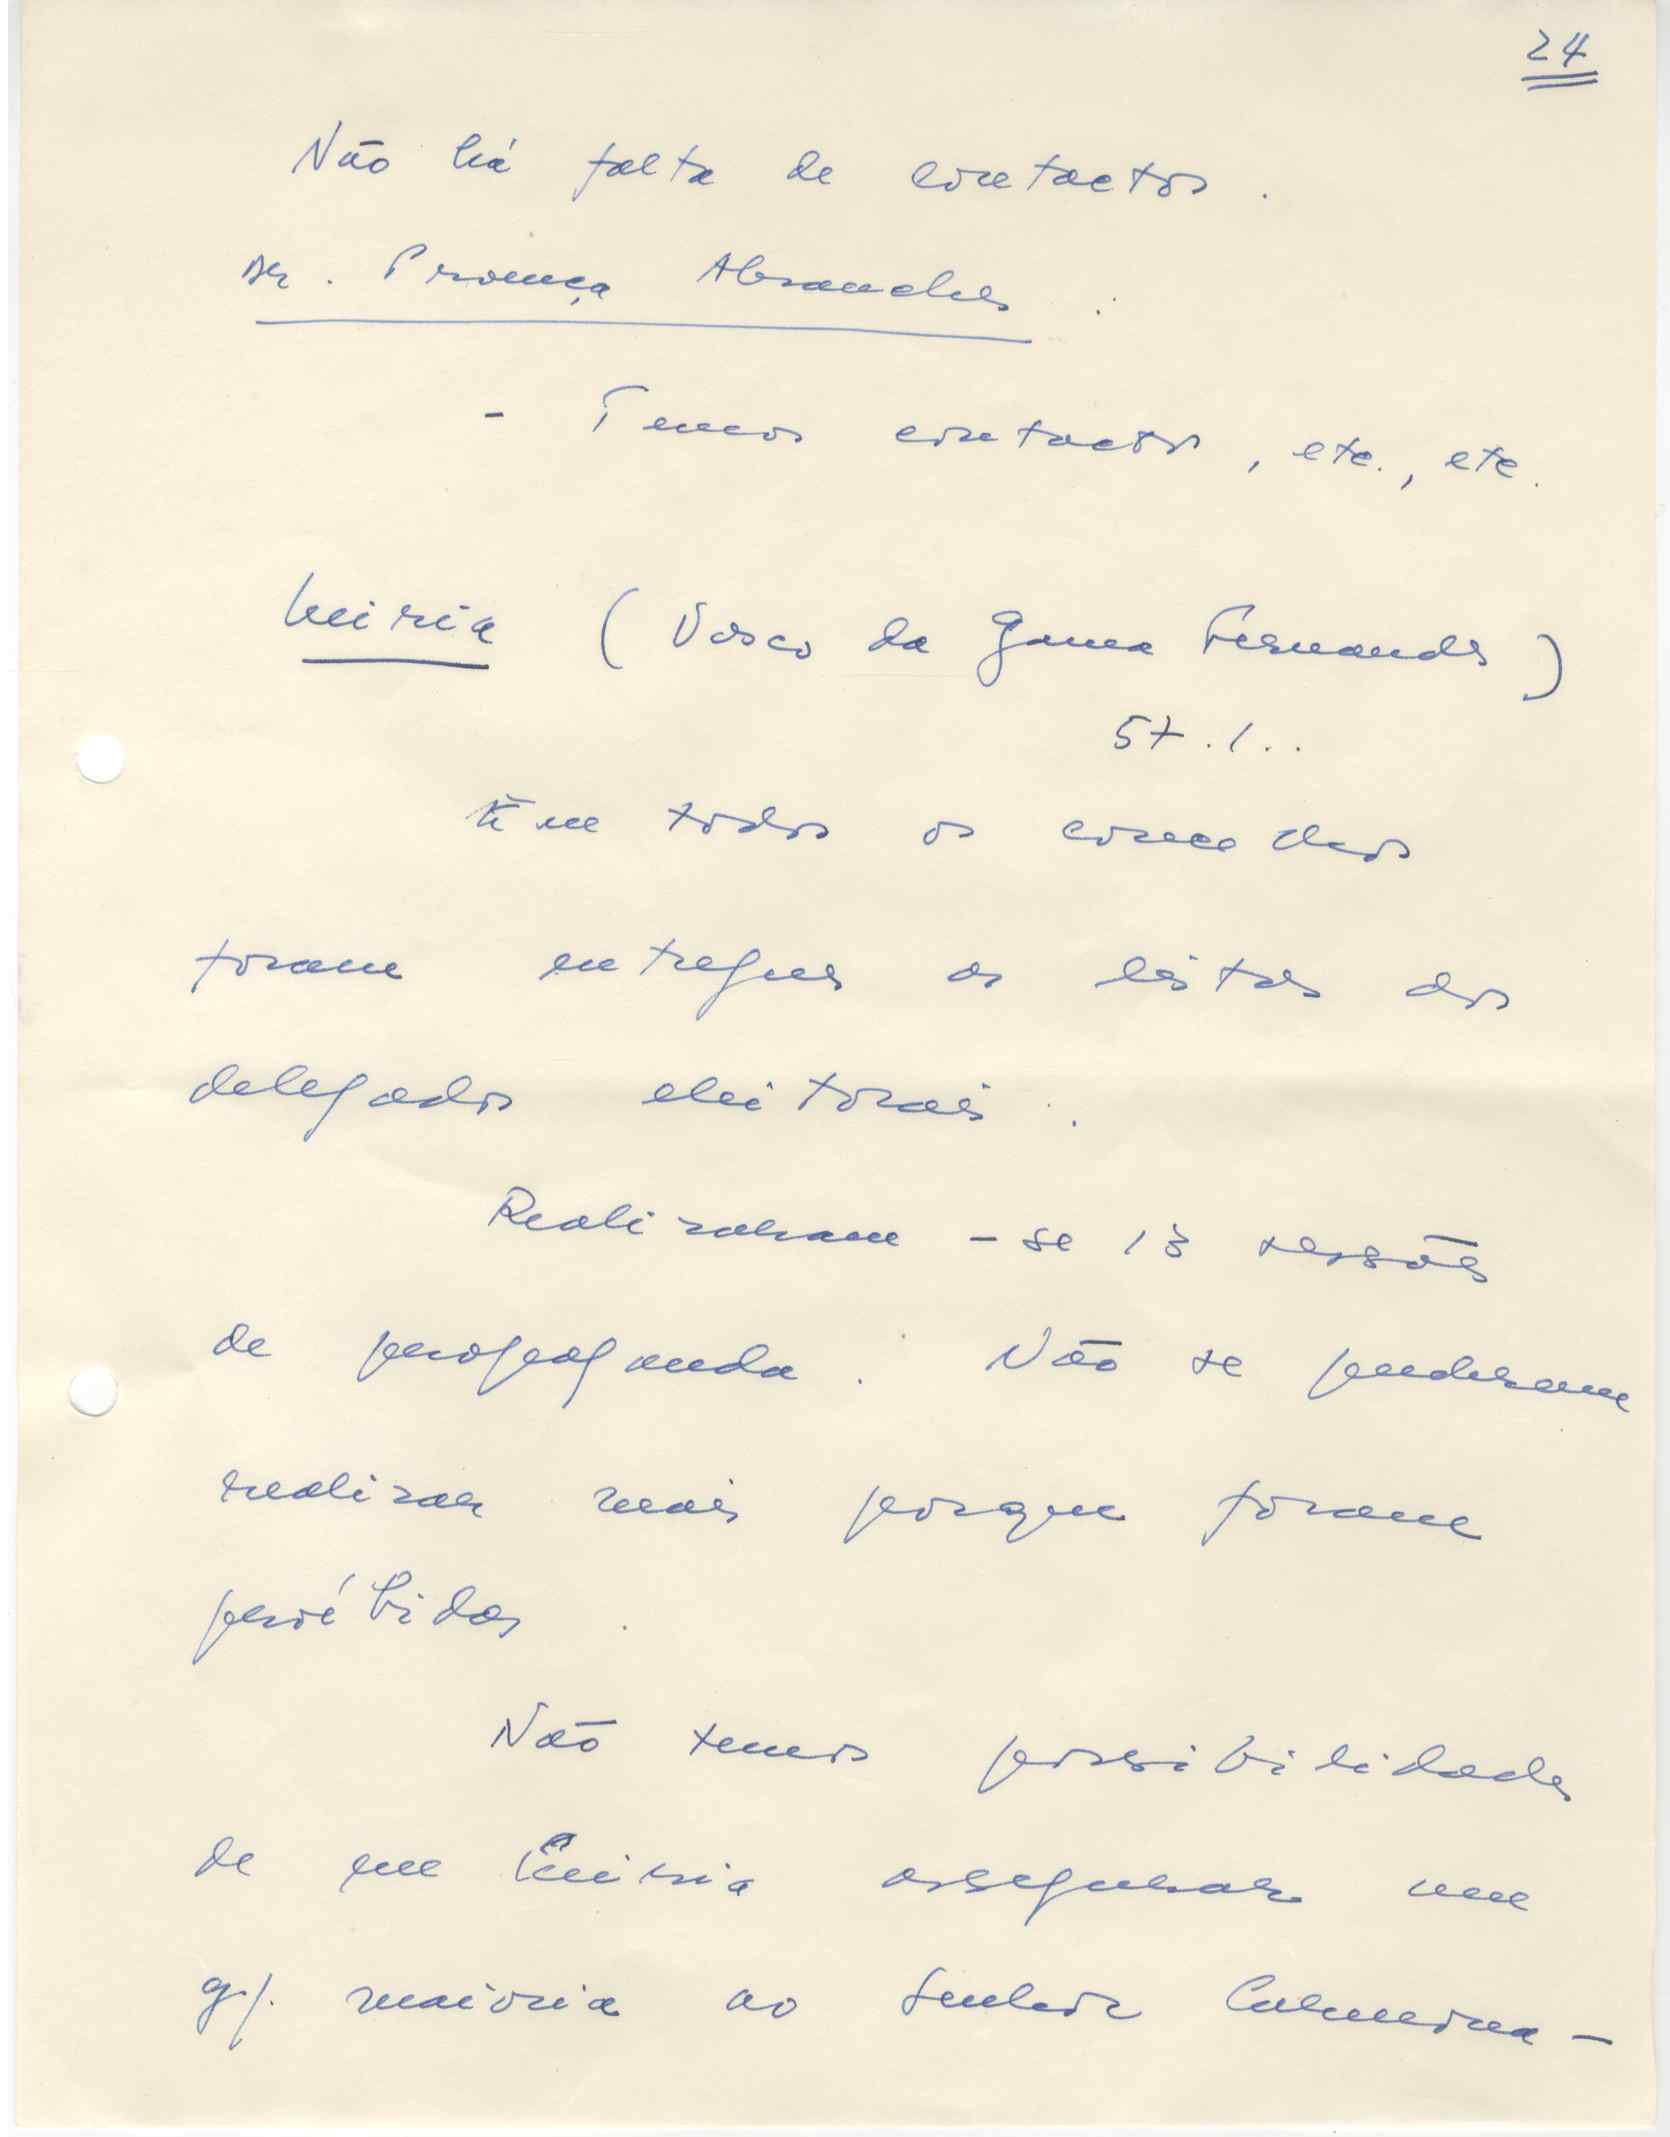 24
Não há falta de contactos.
Dr. Proença Abranches.
- Temos contactos, etc., etc.
Leiria (Vasco da Gama Fernandes)
57.1..
Em todos os concelhos
foram entregues as listas dos
delegados eleitorais.
Realizaram-se 13 sessões
de propaganda. Não se puderam
realizar mais porque foram
proíbidas.
Não temos possibilidades
de em Leiria assegurar uma
g/. maioria ao Senhor